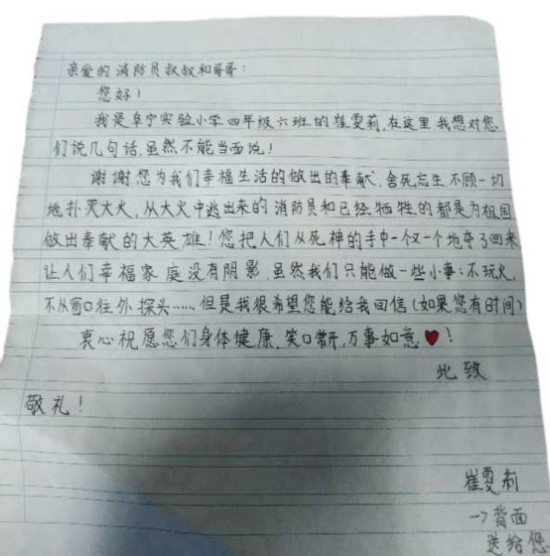 亲爱的消防员叔叔和哥哥:
您好!
我是阜宁实验小学四年级六班的崔雯莉,在这里我想对您
们说几句话,虽然不能当面说!
谢谢您为我们幸福生活的做出的奉献、舍死忘生不顾一切
地扑灭大火,从大火中逃出来的消防员和已经牺牲的都是为祖国
做出奉献的大英雄!您把人们从死神的手中一个又一个地夺了回来
让人们幸福家庭没有阴影、虽然我们只能做一些小事:不玩火、
不从窗口往外探头……但是我很希望您能给我回信(如果您有时间)
衷心祝愿您们身体健康、笑口常开,万事如意❤!
此致
敬礼!
崔雯莉
→背面
送给您